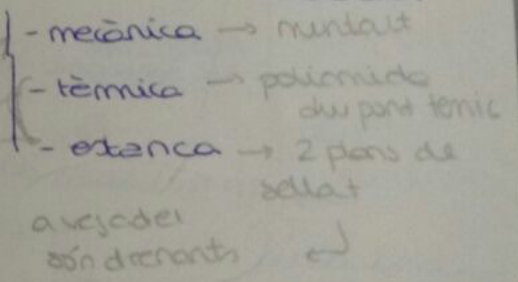 - mecànica → muntant
- tèrmica → poliamida
du pont tèrmic
- estanca → 2 plans de
sellat
a vegades
són drenants ↵